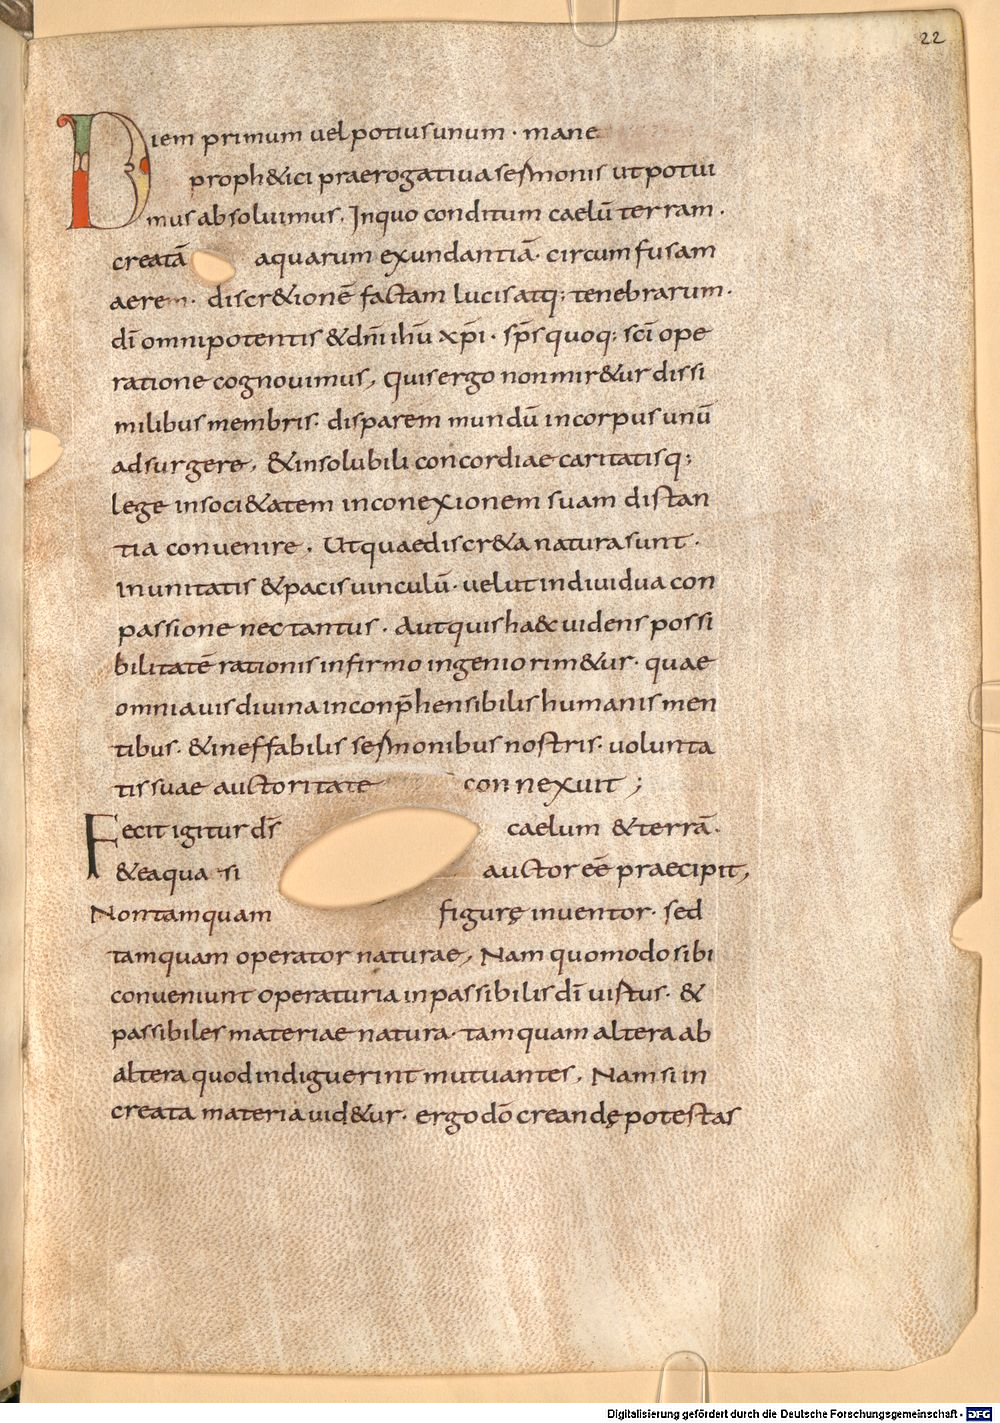 22
Diem primum uel potius unum · mane
proph&ici praerogatiua sermonis ut potui
mus absoluimus. In quo conditum caelū terram.
creatā aquarum exundantiā· circumfusam
aerem· discr&ionē factam lucis atq; tenebrarum.
dī omnipotentis & dn̄i ihū xp̄i · sp̄s quoq; sc̄i ope
ratione cognouimus, quis ergo non mir&ur dissi
milibus membris· disparem mundū in corpus unū
adsurgere, & insolubili concordiae caritatisq;
lege in soci&atem in conexionem suam distan
tia conuenire. Ut quae discr&a natura sunt ·
in unitatis & pacis uinculū· uelut indiuidua con
passione nectantus. Aut quis haec uidens possi
bilitatē rationis infirmo ingenio rim&ur· quae
omnia uis diuina inconp̄hensibilis humanis men
tibus· & ineffabilis sermonibus nostris· uolunta
tis suae auctoritate connexuit ;
Fecit igitur d̄s caelum & terrā·
& ea quasi auctor eē praecipit,
Non tamquam figurę inuentor· sed
tamquam operator naturae, Nam quomodo sibi
conueniunt operaturia inpassibilis dī uistus· &
passibiles materiae natura· tamquam altera ab
altera quod indiguerint mutuantes. Nam si in
creata materia uid&ur· ergo dō creandę potestas
Digitalisierung gefördert durch die Deutsche Forschungsgemeinschaft - DFG